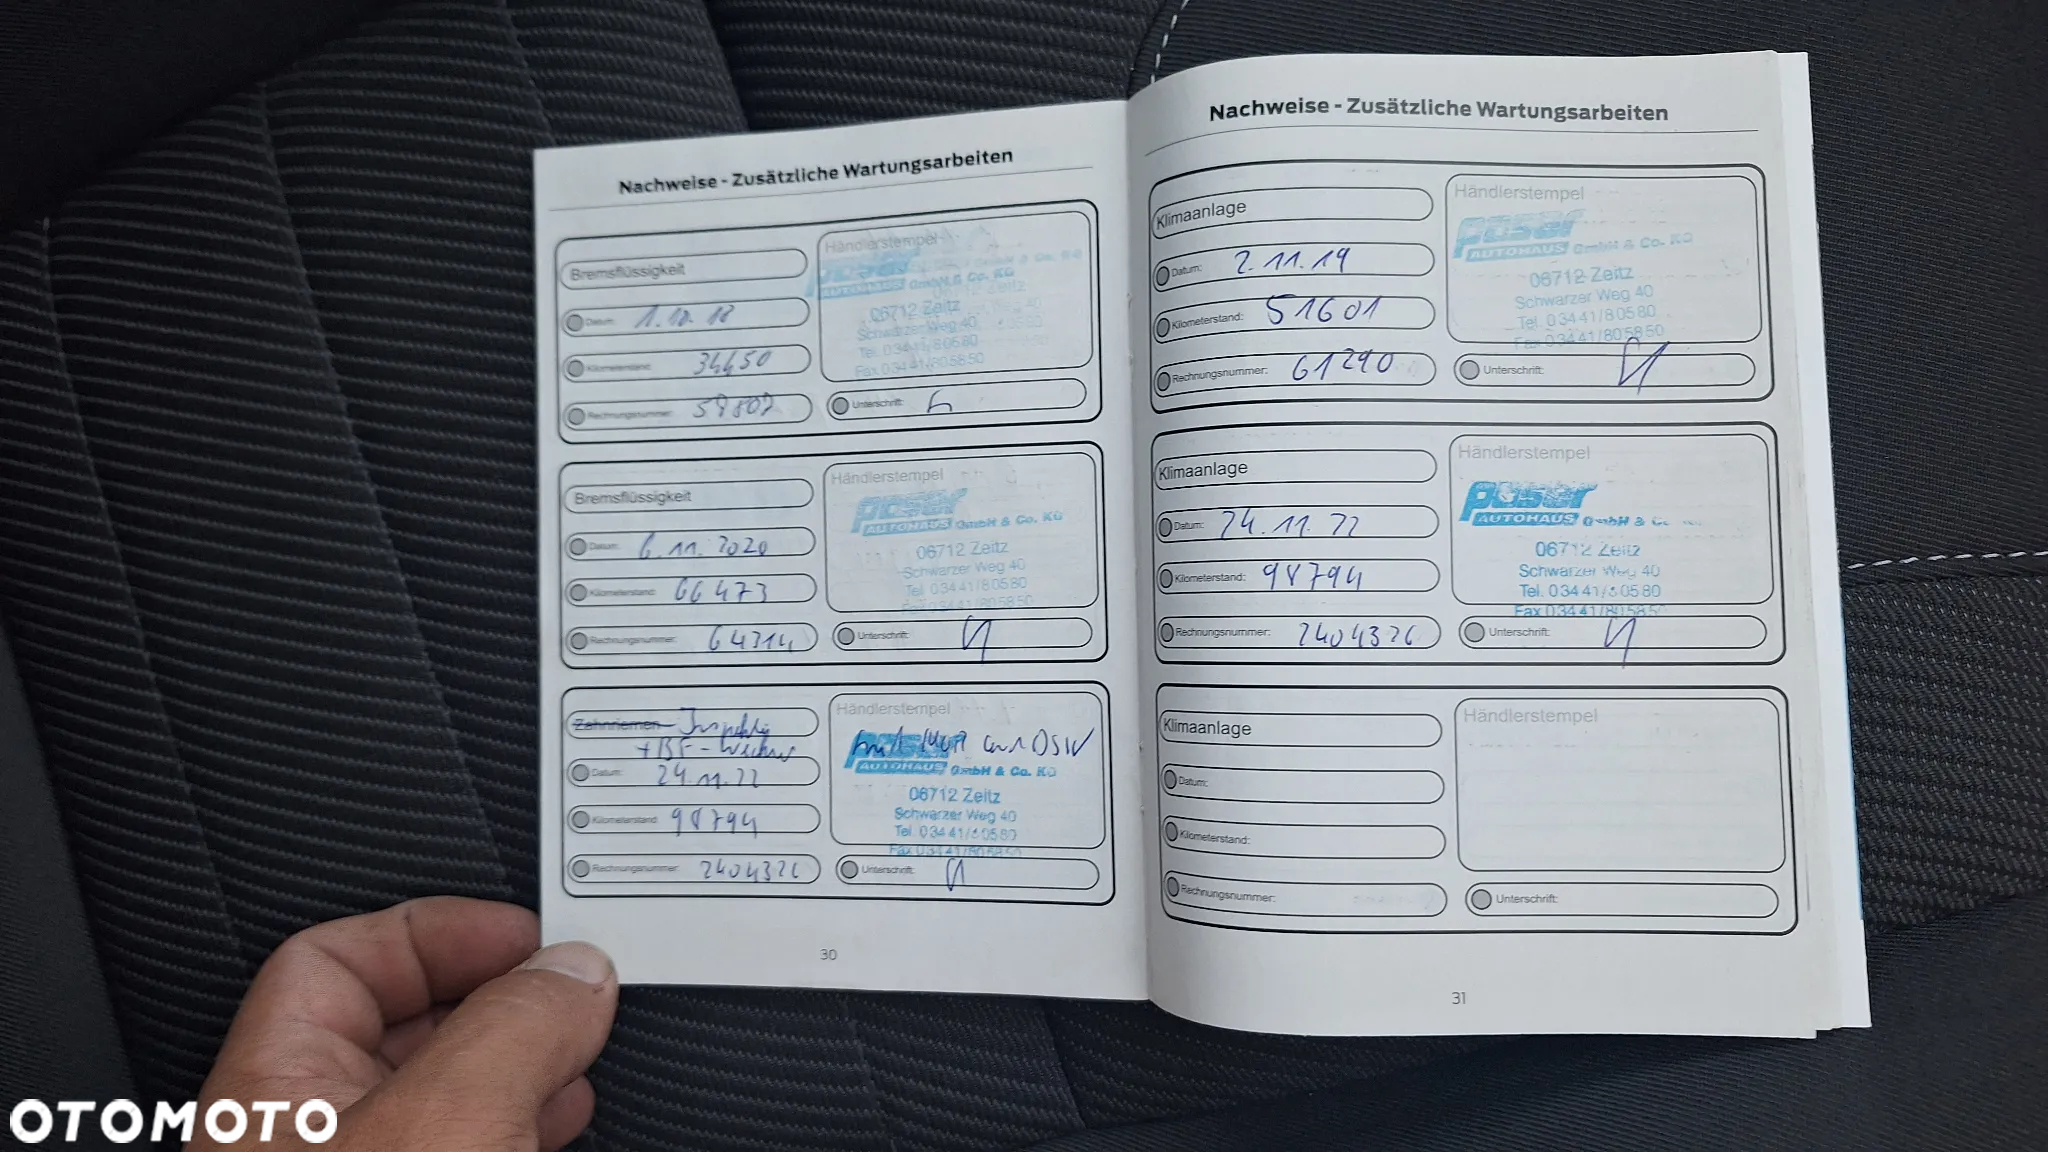 Nachweise - Zusätzliche Wartungsarbeiten
Bremsflüssigkeit
Datum: 1.10.18
Kilometerstand: 34450
Rechnungsnummer: 59807
Händlerstempel
poser
AUTOHAUS GmbH & Co. KG
06712 Zeitz
Schwarzer Weg 40
Tel. 03441/80580
Fax 03441/805850
Unterschrift:
Bremsflüssigkeit
Datum: 6.11.2020
Kilometerstand: 66473
Rechnungsnummer: 64314
Händlerstempel
poser
AUTOHAUS GmbH & Co. KG
06712 Zeitz
Schwarzer Weg 40
Tel. 03441/80580
Fax 03441/805850
Unterschrift:
Zahnriemen
+ BF-Wechsel
Datum: 24.11.22
Kilometerstand: 98794
Rechnungsnummer: 2404326
Händlerstempel
poser
AUTOHAUS GmbH & Co. KG
06712 Zeitz
Schwarzer Weg 40
Tel. 03441/80580
Fax 03441/805850
Unterschrift:
30
Nachweise - Zusätzliche Wartungsarbeiten
Klimaanlage
Datum: 2.11.19
Kilometerstand: 51601
Rechnungsnummer: 61290
Händlerstempel
poser
AUTOHAUS GmbH & Co. KG
06712 Zeitz
Schwarzer Weg 40
Tel. 03441/80580
Fax 03441/805850
Unterschrift:
Klimaanlage
Datum: 24.11.22
Kilometerstand: 98794
Rechnungsnummer: 2404326
Händlerstempel
poser
AUTOHAUS GmbH & Co.
06712 Zeitz
Schwarzer Weg 40
Tel. 03441/80580
Fax 03441/805850
Unterschrift:
Klimaanlage
Datum:
Kilometerstand:
Rechnungsnummer:
Händlerstempel
Unterschrift:
31
OTOMOTO